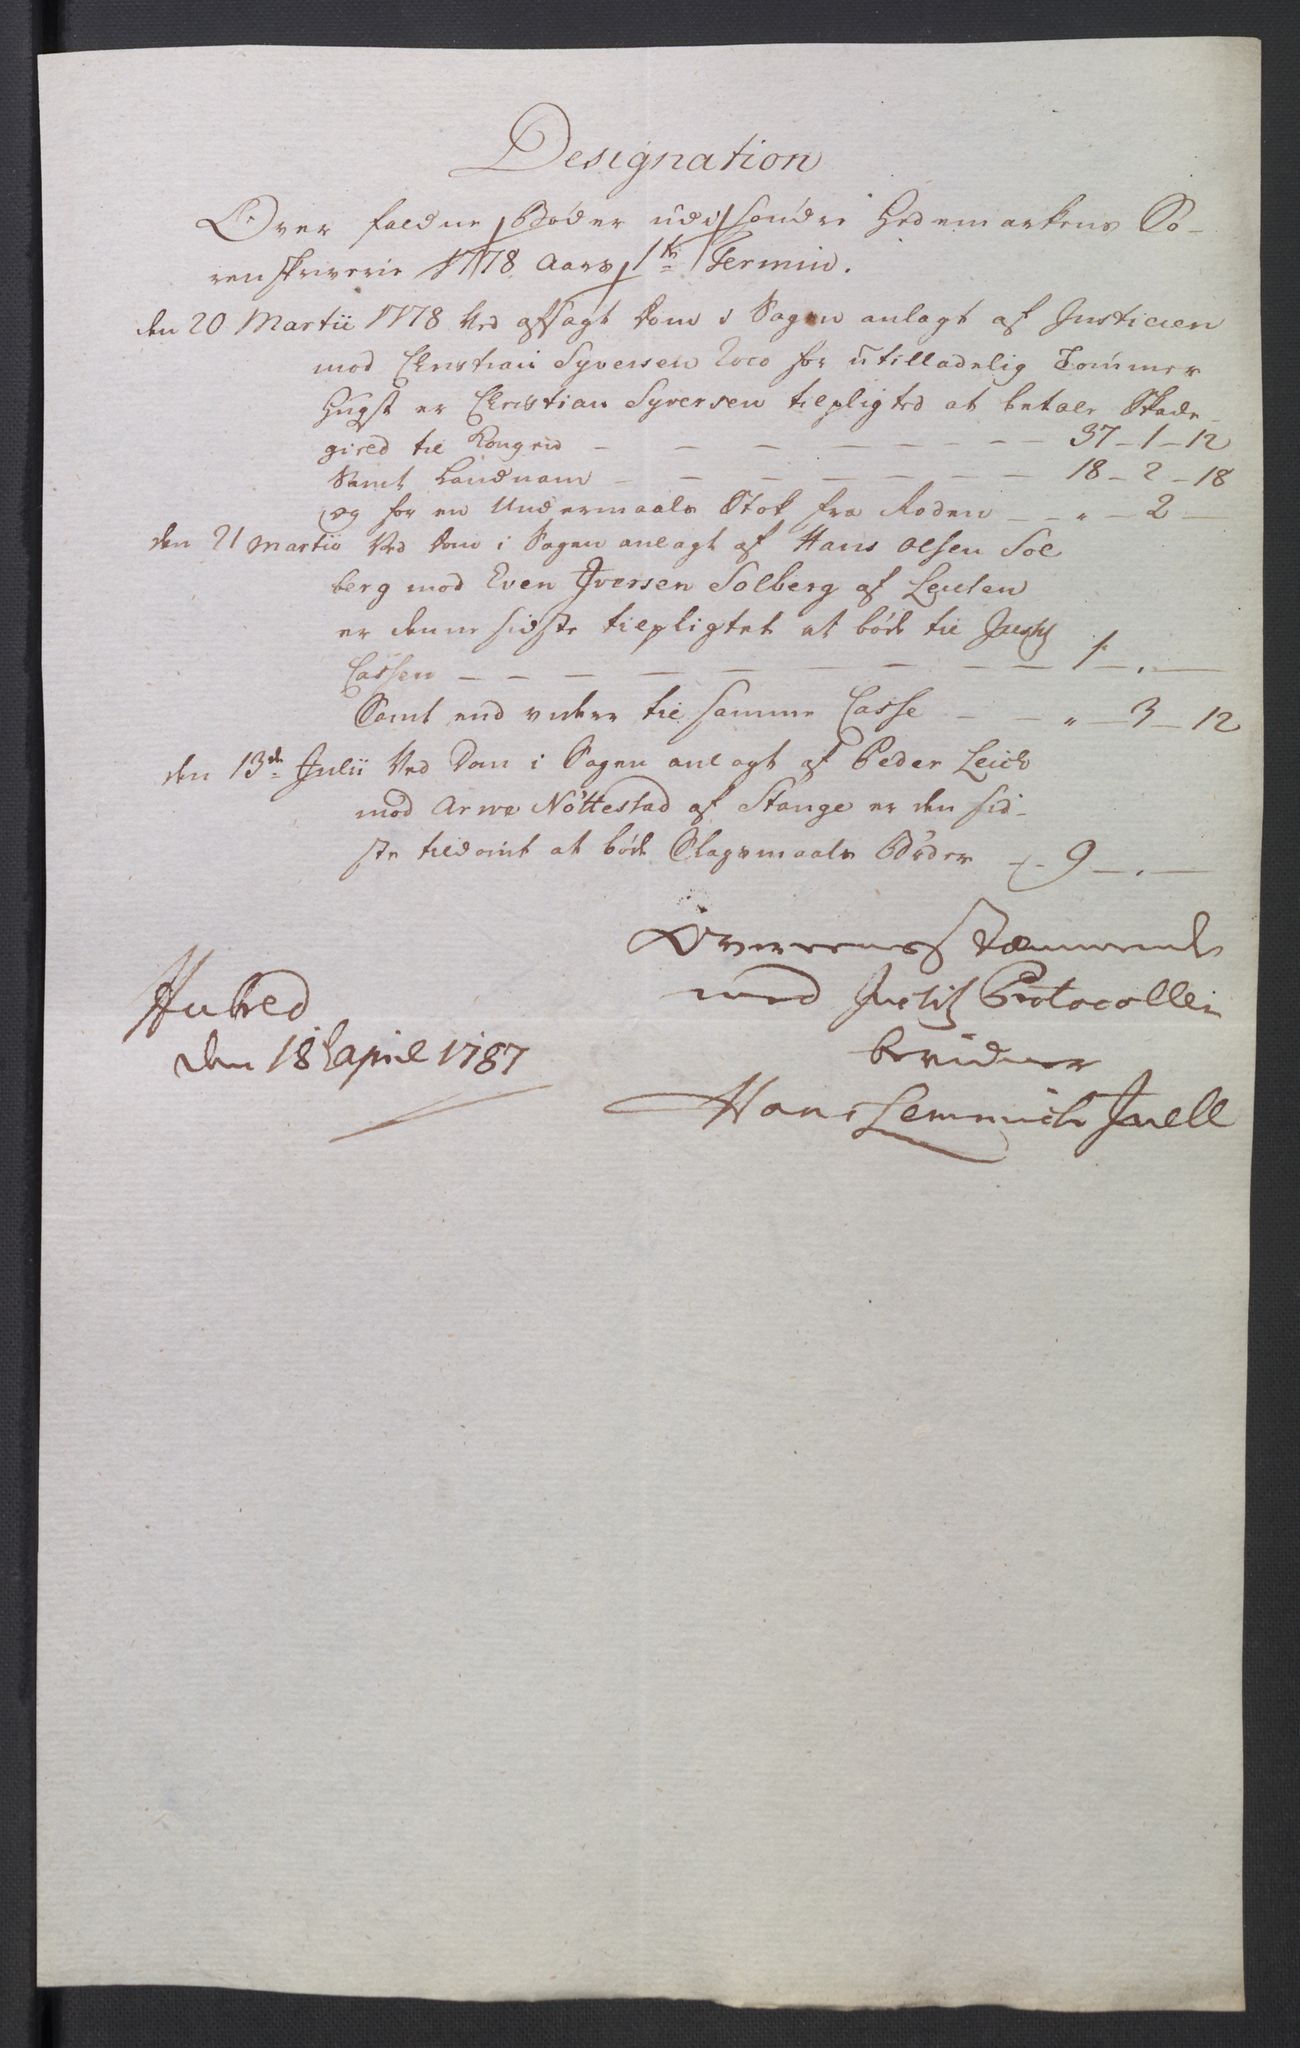 Designation
Over faldne Bøder udi søndre Hedemarkens So-
renskriverie 1778 Aars 1te Termin.
den 20 Martii 1778 Ved afsagt Dom i Sagen anlagt af Justicien
mod Christian Syversen for utilladelig Tømmer
Hugst er Christian Syversen tilpligted at betale Skade
gield til Kongen — — — — — — — — 37 — 1 — 12
Samt Landnam — — — — — — — — 18 — 2 — 18
og for en Undermaals Stok fra Roden — — " — 2 —
den 21 Martii Ved Dom i Sagen anlagt af Hans Olsen Sol
berg mod Even Iversen Solberg af Leuten
er denne sidste tilpligtet at bøde til Justitz
Cassen — — — — — — — — — 1 — . —
Samt end videre til samme Casse — — " — 3 — 12
den 13de Julii Ved Dom i Sagen anlagt af Peder Leich
mod Arne Nøttestad af Stange er den sid-
ste tildømt at bøde Slagsmaals Bøder — 9 — . —
Overeensstæmmende
med Justitz Protocollen
bevidner
Hubred
den 18 April 1787
Hans Lemmich Juell